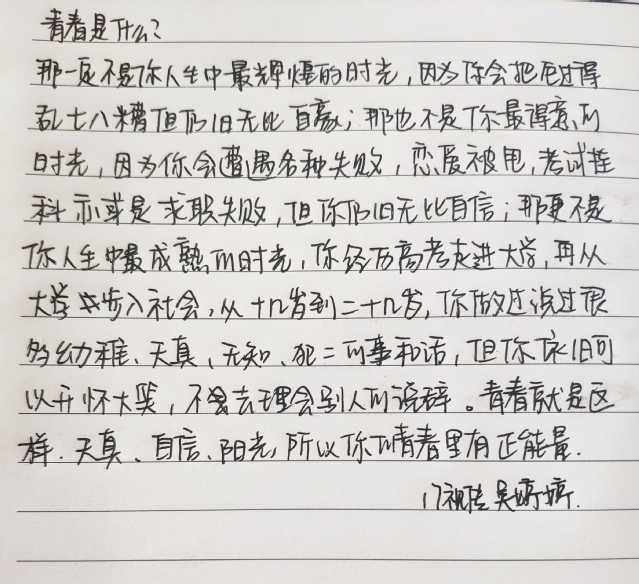 青春是什么?
那一定不是你人生中最辉煌的时光,因为你会把它过得
乱七八糟但仍旧无比自豪;那也不是你最得意的
时光,因为你会遭遇各种失败,恋爱被甩,考试挂
科亦或是求职失败,但你仍旧无比自信;那更不是
你人生中最成熟的时光,你经历高考走进大学,再从
大学步入社会,从十几岁到二十几岁,你做过说过很
多幼稚、天真、无知、犯二的事和话,但你依旧可
以开怀大笑,不会去理会别人的说辞。青春就是这
样.天真、自信、阳光,所以你的青春里有正能量.
17视传 吴婷婷.